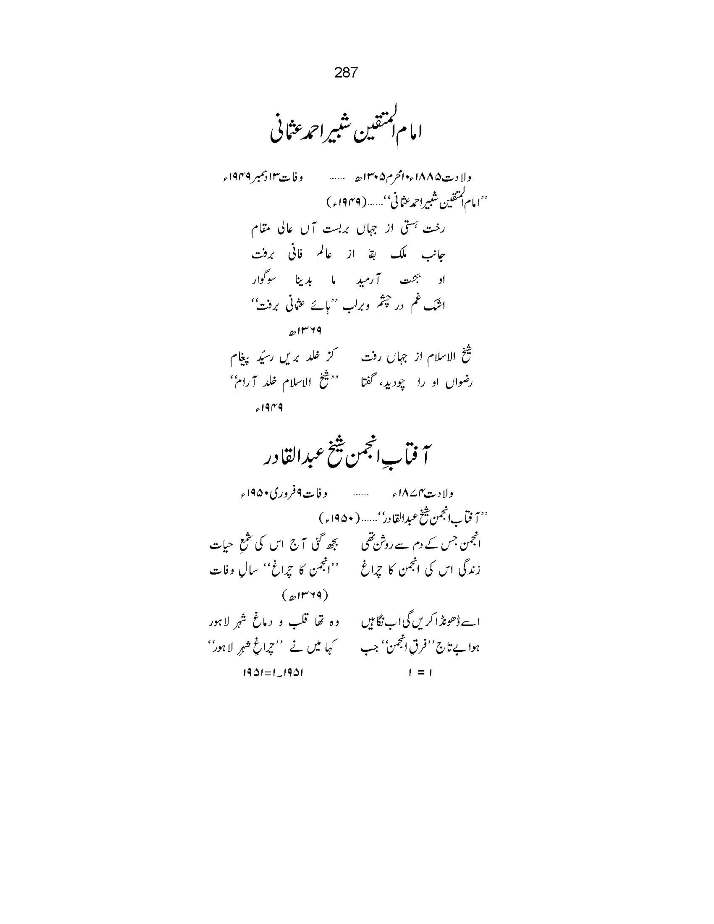 287
امام المتقین شبیر احمد عثمانی
ولادت ۱۸۸۵ء ۱۰محرم ۱۳۰۵ھ ...... وفات ۱۳دسمبر ۱۹۴۹ء
’’امام المتقین شبیر احمد عثمانی‘‘......(۱۹۴۹ء)
رخت ہستی از جہاں بربست آں عالی مقام
جانب ملک بقا از عالم فانی برفت
او بجنت آرمید ما بدینا سوگوار
اشک غم در چشم وبرلب ’’ہائے عثمانی برفت‘‘
۱۳۶۹ھ
شیخ الاسلام از جہاں رفت کز خلد بریں رسید پیغام
رضواں او را چودید، گفتا ’’شیخ الاسلام خلد آرام‘‘
۱۹۴۹ء
آفتابِ انجمن شیخ عبدالقادر
ولادت ۱۸۷۴ء ...... وفات ۹فروری ۱۹۵۰ء
’’آفتاب انجمن شیخ عبدالقادر‘‘......(۱۹۵۰ء)
انجمن جس کے دم سے روشن تھی بجھ گئی آج اس کی شمعِ حیات
زندگی اس کی انجمن کا چراغ ’’انجمن کا چراغ‘‘ سالِ وفات
(۱۳۶۹ھ)
اسے ڈھونڈا کریں گی اب نگاہیں وہ تھا قلب و دماغ شہر لاہور
ہوا بے تاج ’’فرقِ انجمن‘‘ جب کہا میں نے ’’چراغِ شہر لاہور‘‘
۱ = ۱ ۱۹۵۱_۱=۱۹۵۱